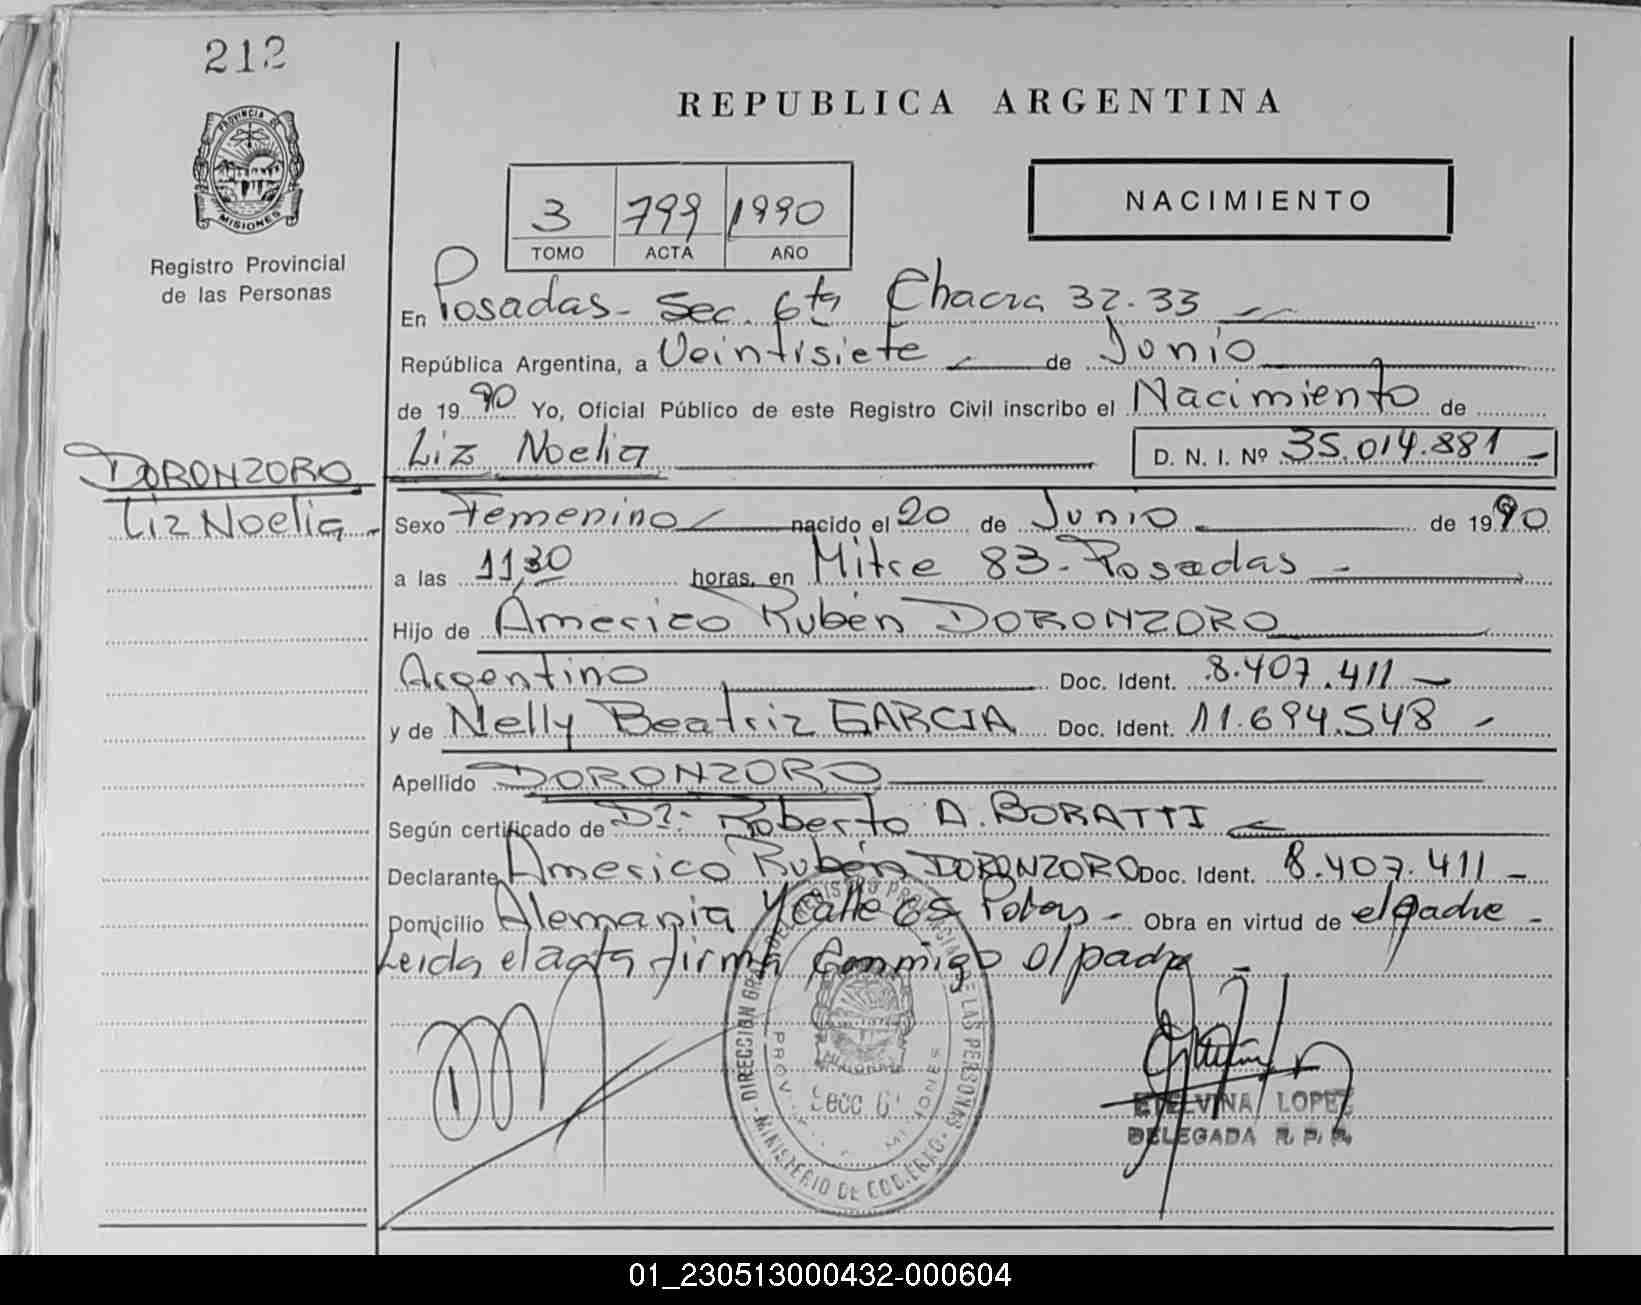 212
REPUBLICA ARGENTINA
PROVINCIA DE
MISIONES
Registro Provincial
de las Personas
3 799 1990
TOMO ACTA AÑO
NACIMIENTO
En Posadas - Sec. 6ta Chacra 32-33
República Argentina, a Veintisiete de Junio
de 1990 Yo, Oficial Público de este Registro Civil inscribo el Nacimiento de
Liz Noelia D. N. I. Nº 35.014.881 -
DORONZORO
Liz Noelia -
Sexo Femenino nacido el 20 de Junio de 1990
a las 11,30 horas, en Mitre 83 - Posadas -
Hijo de Américo Rubén DORONZORO
Argentino Doc. Ident. 8.407.411 -
y de Nelly Beatriz GARCIA Doc. Ident. 11.694.548 -
Apellido DORONZORO
Según certificado de Dr. Roberto A. BORATTI
Declarante Americo Rubén DORONZORO Doc. Ident. 8.407.411 -
Domicilio Alemania y calle 65 - Obra en virtud de el padre -
Leida el acta firma conmigo el padre -
DIRECCION GRAL DEL REGISTRO PROVINCIAL DE LAS PERSONAS
MINISTERIO DE GOBIERNO
MISIONES
Secc 6
ETELVINA LOPEZ
DELEGADA R. P. P.
01_230513000432-000604